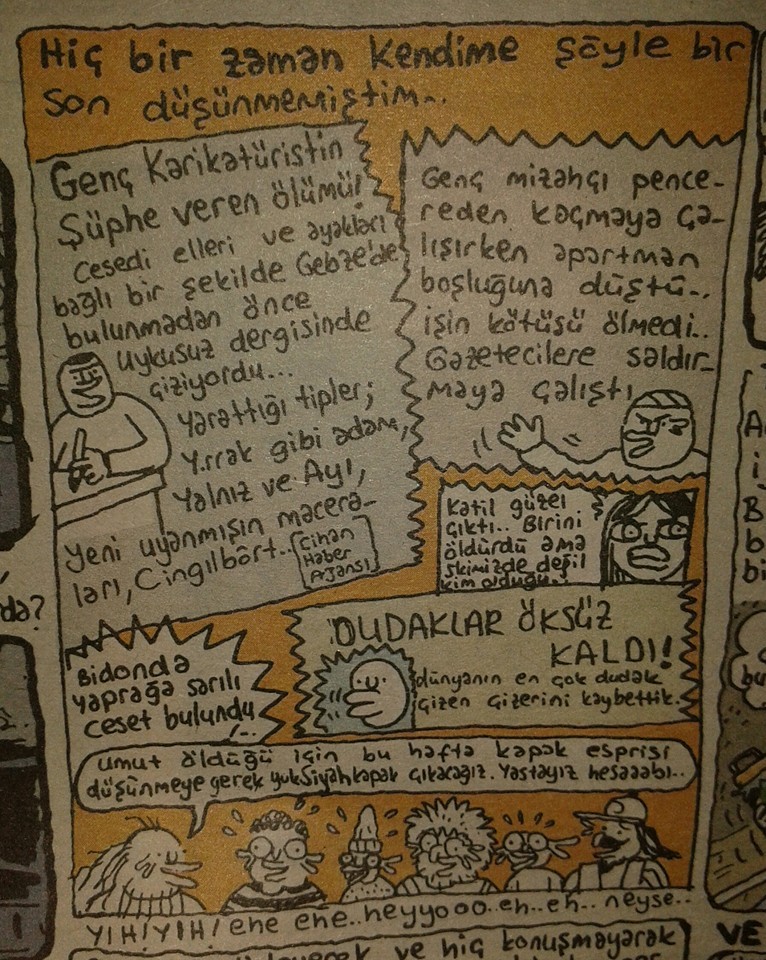 Hiç bir zaman kendime şöyle bir
son düşünmemiştim..
Genç Karikatüristin
Şüphe veren ölümü!
Cesedi elleri ve ayakları
bağlı bir şekilde Gebze'de
bulunmadan önce
uykusuz dergisinde
çiziyordu...
Yarattığı tipler;
Y.rrak gibi adam,
Yalnız ve Ayı,
Yeni uyanmışın macera-
ları, Cingılbört..
Cihan
Haber
Ajansı
Genç mizahçı pence-
reden kaçmaya ça-
lışırken apartman
boşluğuna düştü..
işin kötüsü ölmedi..
Gazetecilere saldır-
maya çalıştı
Katil güzel
çıktı.. Birini
öldürdü ama
skimizde değil
kim olduğu.
Bidonda
yaprağa sarılı
ceset bulundu
!..
DUDAKLAR ÖKSÜZ
KALDI!
dünyanın en çok dudak
çizen çizerini kaybettik.
Umut öldüğü için bu hafta kapak esprisi
düşünmeye gerek yuk Siyah kapak çıkacağız. Yastayız hesaaabı..
YIH! YIH! ehe ehe.. heyyooo.. eh.. eh.. neyse..
da?
A
i
B
b
bi
bu
ve hiç konuşmayarak
VE